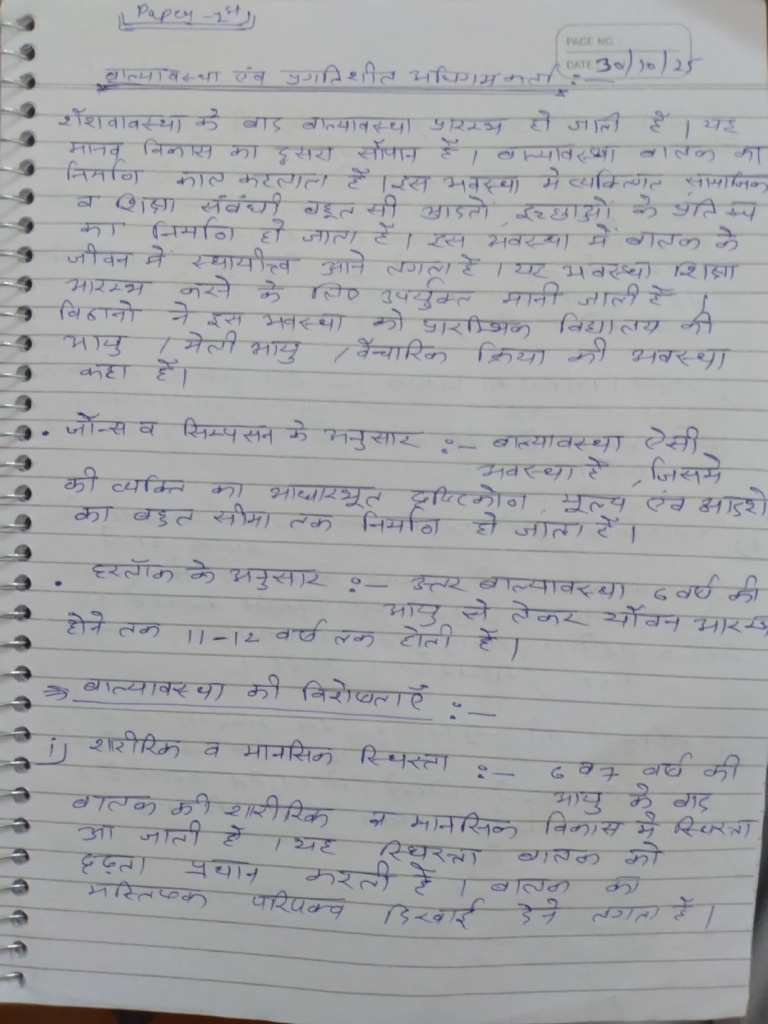 Paper - 1st
PAGE NO.
DATE 30/10/25
बाल्यावस्था एंव प्रगतिशील अधिगमकर्ता :-
शैशवावस्था के बाद बाल्यावस्था प्रारम्भ हो जाती है । यह
मानव विकास का दूसरा सोपान है । बाल्यावस्था बालक का
निर्माण काल कहलाता है । इस अवस्था में व्यक्तिगत सामाजिक
व शिक्षा संबंधी बहुत सी आदतों, इच्छाओं के प्रतिरूप
का निर्माण हो जाता है । इस अवस्था में बालक के
जीवन में स्थायीत्व आने लगता है । यह अवस्था शिक्षा
आरम्भ करने के लिए उपर्युक्त मानी जाती है ।
विद्वानो ने इस अवस्था को प्रारम्भिक विद्यालय की
आयु / मेली आयु / वैचारिक क्रिया की अवस्था
कहा है ।
• जॉन्स व सिम्पसन के अनुसार :- बाल्यावस्था ऐसी
अवस्था है , जिसमे
की व्यक्ति का आधारभूत दृष्टिकोण, मूल्य एंव आदर्शो
का बहुत सीमा तक निर्माण हो जाता है ।
• हरलॉक के अनुसार :- उत्तर बाल्यावस्था 6 वर्ष की
आयु से लेकर यौवन आरम्भ
होने तक 11-12 वर्ष तक होती है ।
⇒ बाल्यावस्था की विशेषताएँ :-
i) शारीरिक व मानसिक स्थिरता :- 6 व 7 वर्ष की
आयु के बाद
बालक की शारीरिक व मानसिक विकास में स्थिरता
आ जाती है । यह स्थिरता बालक को
दृढ़ता प्रधान करती है । बालक का
मस्तिष्क परिपक्व दिखाई देने लगता है ।